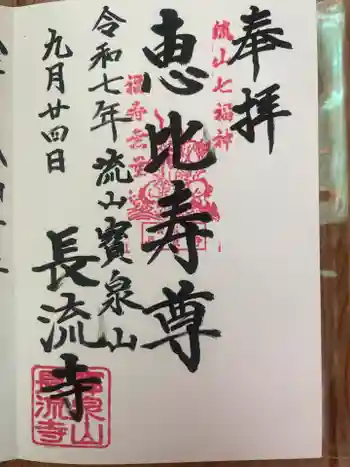 奉拝
流山七福神
恵比寿尊
福寿無量
令和七年 流山寳泉山
長流寺
九月廿四日
寳泉山
長流寺